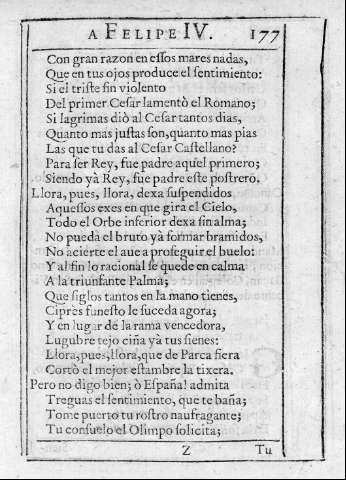 A FELIPE IV. 177
Con gran razon en essos mares nadas,
Que en tus ojos produce el sentimiento:
Si el triste fin violento
Del primer Cesar lamentò el Romano;
Si lagrimas diò al Cesar tantos dias,
Quanto mas justas son, quanto mas pias
Las que tu das al Cesar Castellano?
Para ser Rey, fue padre aquel primero;
Siendo yà Rey, fue padre este postrero.
Llora, pues, llora, dexa suspendidos
Aquessos exes en que gira el Cielo,
Todo el Orbe inferior dexa sin alma;
No pueda el bruto yà formar bramidos,
No acierte el aue a proseguir el buelo:
Y al fin lo racional se quede en calma
A la triunfante Palma;
Que siglos tantos en la mano tienes,
Cipres funesto le suceda agora;
Y en lugar de la rama vencedora,
Lugubre tejo ciña yà tus sienes:
Llora, pues, llora, que de Parca fiera
Cortò el mejor estambre la tixera.
Pero no digo bien; ò España! admita
Treguas el sentimiento, que te baña;
Tome puerto tu rostro naufragante;
Tu consuelo el Olimpo solicita;
Z Tu